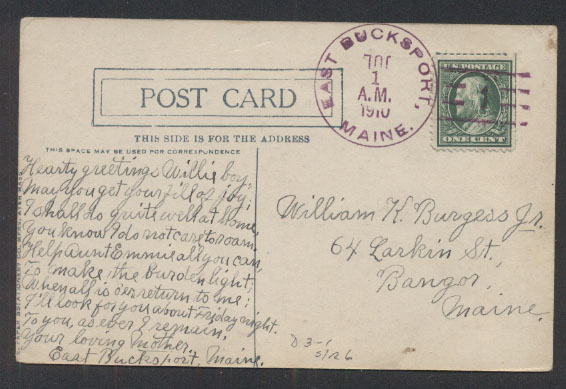 EAST BUCKSPORT,
JUL
1
A.M.
1910
MAINE.
U.S. POSTAGE
1
ONE CENT
POST CARD
THIS SIDE IS FOR THE ADDRESS
THIS SPACE MAY BE USED FOR CORRESPONDENCE
Hearty greetings Willie boy;
May you get your fill of joy;
I shall do quite well at home,
You know I do not care to roam.
Help Aunt Emmie all you can,
To make the burden light;
When all is o'er return to me;
I'll look for you about Friday night.
To you, as ever I remain,
Your loving mother,
East Bucksport, Maine.
William K. Burgess Jr.
64 Larkin St,
Bangor,
Maine.
D 3-1